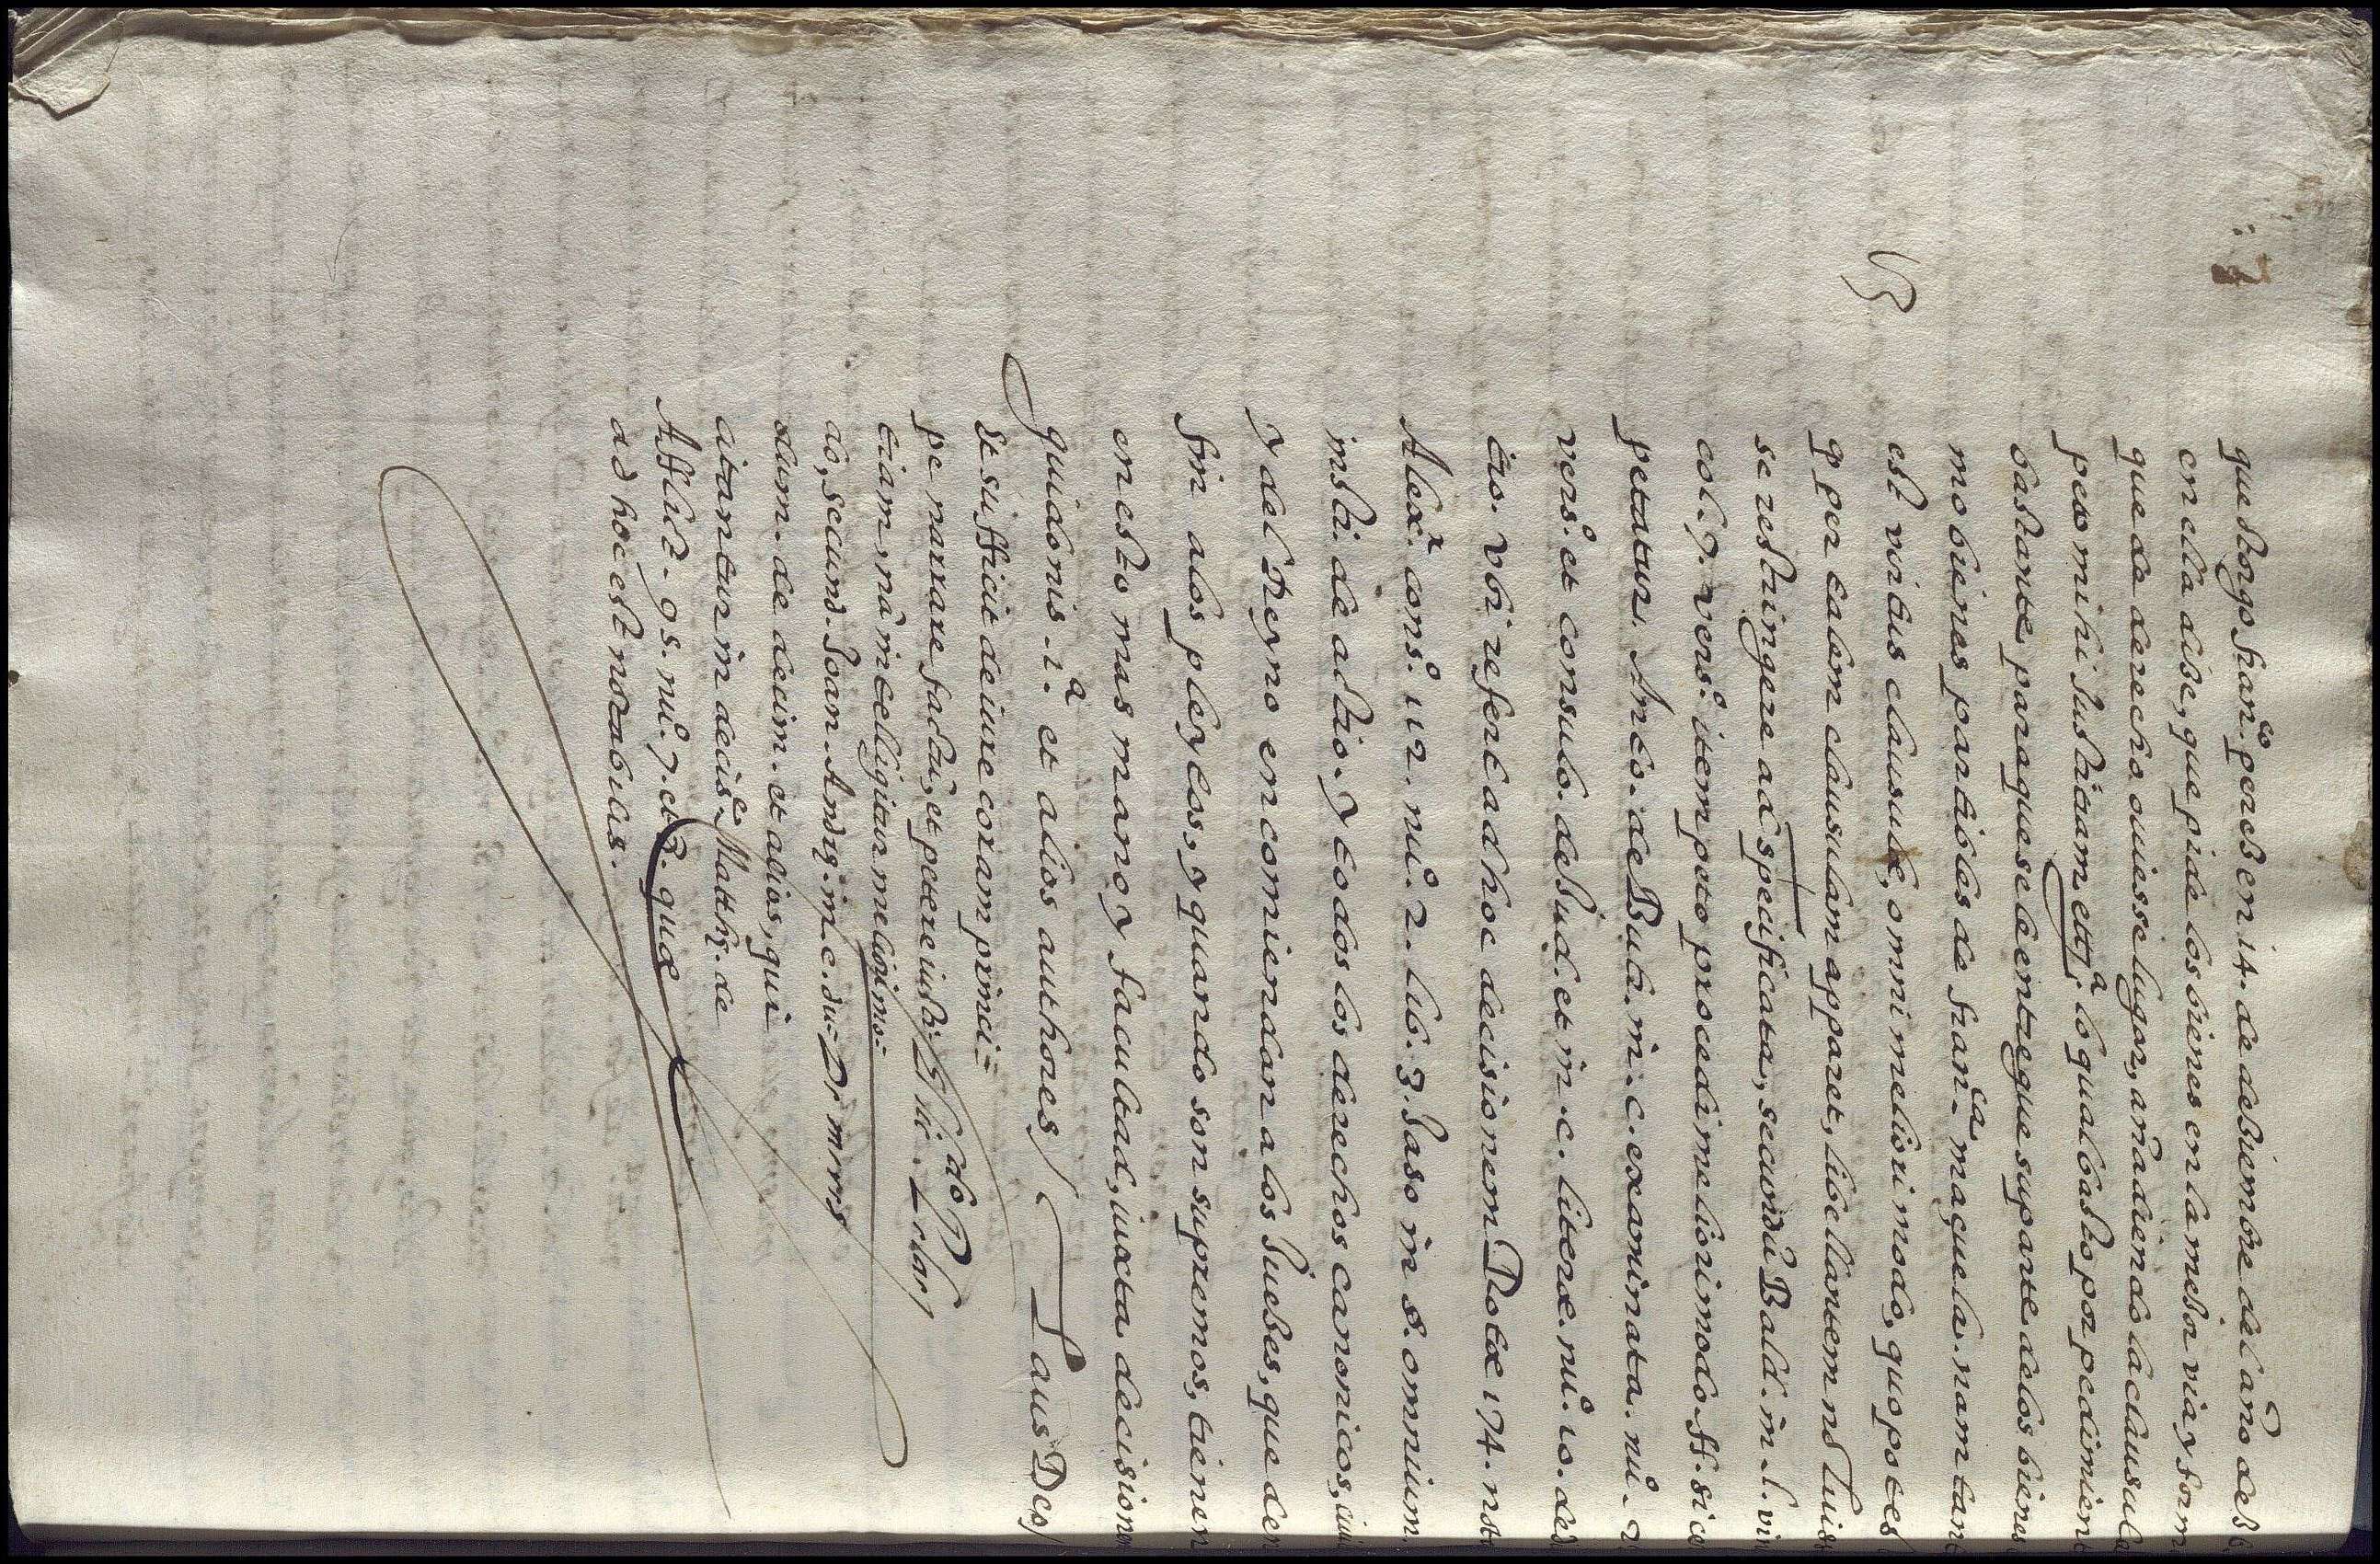 que otorgo fran.co perez en 14. de deziembre del año de
en ella dize, que pide los bienes en la mejor via y form
que de derecho ouiesse lugar, añadiendo la clausula
peto mihi iustitiam, ett.a lo qual basto por pedimient
bastante para que se le entregue su parte de los bienes
mobienes partibles de fran.ca maçuela. nam tant
est virtus clausulæ, omni meliori modo, quo potest
q per talem clausulam apparet, libellantem no luiss
se restringere ad specificata, secundū Bald. in. l. vin
col. 7. verso. item peto procedi meliori modo. ff. si ce
petatur. Anto. de Butr. in. c. examinata. nuo. 2
verso. et consulo. de Iud. et in. c. literæ. nuo. 10. de
ubi refert ad hoc decisionem Rotæ 174. not
Alexr. conso. 112. nuo. 2. lib. 3. Jaso in §. omnium
insti. de actio. y todos los derechos canonicos,
y del Reyno encomiendan a los Jueces, que den
fin a los pleytos, y quando son supremos, tienen
en esto mas mano y facultad, iuxta decisionem
guidonis. 1.a et alios authores/ Laus Deo/
et sufficit de iure coram princi=
pe narrare factū, et petere iusti=
tiam, nā intelligitur meliori mo=
do, secund. Joan. Andr. in. c. du=
dum. de decim. et alios, qui
citantur in deciso. Matthę. de
Afflict. 95. nuo. 7. et 8. quæ
ad hoc est notabilis.